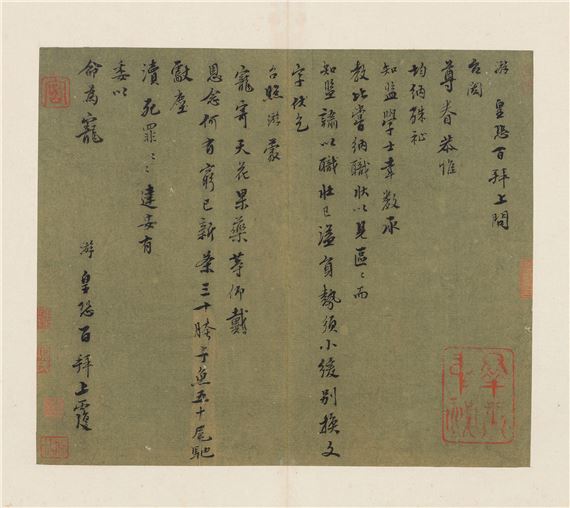 游皇恐百拜上問
台閤
尊眷恭惟
均納殊祉
知監學士數承
教比嘗納職狀以見區〻而
知監謙以職狀已溢員勢須小緩別換文
字伏乞
台照游蒙
寵寄天花果藥等仰戴
恩念何有窮已新茶三十胯子魚五十尾馳
獻塵
瀆死罪〻〻建安有
委以
命為寵
游皇恐百拜上覆